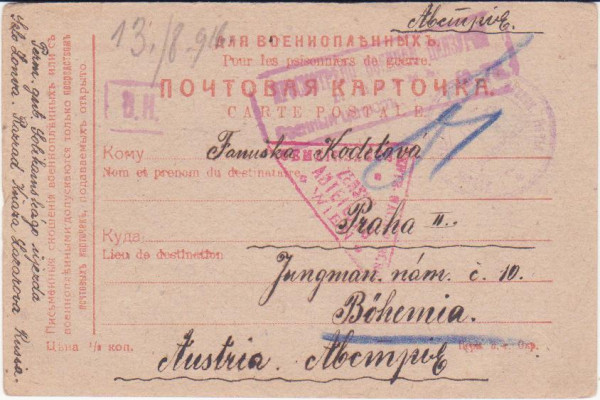 Австріѣ.
13./8.916
ДЛЯ ВОЕННОПЛѢННЫХЪ.
Pour les prisonniers de guerre.
ПОЧТОВАЯ КАРТОЧКА.
CARTE POSTALE.
D.H.
Кому Fanuška Kodetová
Nom et prénom du destinataire
ZENS
WIEN
Praha II.
Куда
Lieu de destination
Jungman. nám. č. 10.
Böhemia.
Austria. Австріѣ
Цѣна 1/2 коп.
Письменныя сношенія военноплѣнныхъ или съ
военноплѣнными допускаются только посредствомъ
почтовыхъ карточекъ, подаваемыхъ открыто.
Perm. gub. Solikamskago ujezda
Selo Lonva. Razrad Knaza Lazarova Rusia.